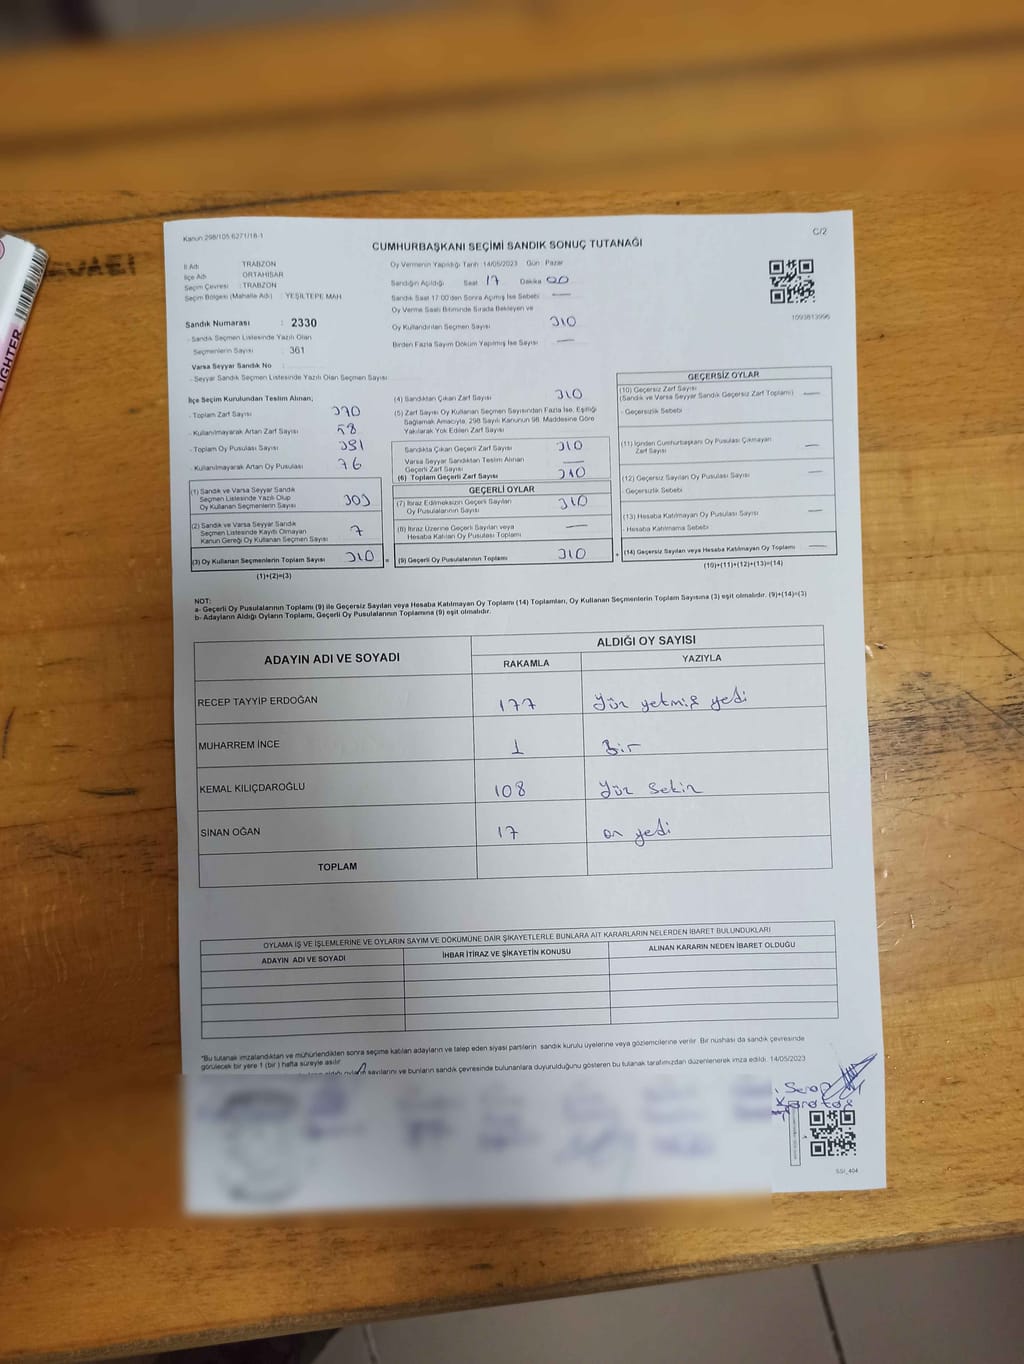 Kanun:298/105 6271/18-1
C/2
CUMHURBAŞKANI SEÇİMİ SANDIK SONUÇ TUTANAĞI
İl Adı TRABZON
İlçe Adı ORTAHİSAR
Seçim Çevresi : TRABZON
Seçim Bölgesi (Mahalle Adı) : YEŞİLTEPE MAH.
Sandık Numarası : 2330
- Sandık Seçmen Listesinde Yazılı Olan
Seçmenlerin Sayısı : 361
Varsa Seyyar Sandık No
- Seyyar Sandık Seçmen Listesinde Yazılı Olan Seçmen Sayısı
Oy Vermenin Yapıldığı Tarih :14/05/2023 Gün : Pazar
Sandığın Açıldığı Saat 17 Dakika 00
Sandık Saat 17:00'den Sonra Açılmış İse Sebebi —
Oy Verme Saati Bitiminde Sırada Bekleyen ve
Oy Kullandırılan Seçmen Sayısı 310
Birden Fazla Sayım Döküm Yapılmış İse Sayısı —
1093813996
İlçe Seçim Kurulundan Teslim Alınan;
- Toplam Zarf Sayısı 370
- Kullanılmayarak Artan Zarf Sayısı 58
- Toplam Oy Pusulası Sayısı 381
- Kullanılmayarak Artan Oy Pusulası 76
(1) Sandık ve Varsa Seyyar Sandık
Seçmen Listesinde Yazılı Olup
Oy Kullanan Seçmenlerin Sayısı 303
(2) Sandık ve Varsa Seyyar Sandık
Seçmen Listesinde Kayıtlı Olmayan
Kanun Gereği Oy Kullanan Seçmen Sayısı 7
(3) Oy Kullanan Seçmenlerin Toplam Sayısı 310 =
(1)+(2)=(3)
(4) Sandıktan Çıkan Zarf Sayısı 310
(5) Zarf Sayısı Oy Kullanan Seçmen Sayısından Fazla İse, Eşitliği
Sağlamak Amacıyla, 298 Sayılı Kanunun 98. Maddesine Göre
Yakılarak Yok Edilen Zarf Sayısı
Sandıkta Çıkan Geçerli Zarf Sayısı 310
Varsa Seyyar Sandıktan Teslim Alınan
Geçerli Zarf Sayısı —
(6) Toplam Geçerli Zarf Sayısı 310
GEÇERLİ OYLAR
(7) İtiraz Edilmeksizin Geçerli Sayılan
Oy Pusulasının Sayısı 310
(8) İtiraz Üzerine Geçerli Sayılan veya
Hesaba Katılan Oy Pusulası Toplamı —
(9) Geçerli Oy Pusulalarının Toplamı 310 +
GEÇERSİZ OYLAR
(10) Geçersiz Zarf Sayısı
(Sandık ve Varsa Seyyar Sandık Geçersiz Zarf Toplamı) —
- Geçersizlik Sebebi
(11) İçinden Cumhurbaşkanı Oy Pusulası Çıkmayan
Zarf Sayısı —
(12) Geçersiz Sayılan Oy Pusulası Sayısı —
- Geçersizlik Sebebi
(13) Hesaba Katılmayan Oy Pusulası Sayısı —
- Hesaba Katılmama Sebebi
(14) Geçersiz Sayılan veya Hesaba Katılmayan Oy Toplamı —
(10)+(11)+(12)+(13)=(14)
NOT:
a- Geçerli Oy Pusulalarının Toplamı (9) ile Geçersiz Sayılan veya Hesaba Katılmayan Oy Toplamı (14) Toplamları, Oy Kullanan Seçmenlerin Toplam Sayısına (3) eşit olmalıdır. (9)+(14)=(3)
b- Adayların Aldığı Oyların Toplamı, Geçerli Oy Pusulalarının Toplamına (9) eşit olmalıdır.
ADAYIN ADI VE SOYADI ALDIĞI OY SAYISI
RAKAMLA YAZIYLA
RECEP TAYYİP ERDOĞAN 177 Yüz yetmiş yedi
MUHARREM İNCE 1 Bir
KEMAL KILIÇDAROĞLU 108 Yüz Sekiz
SİNAN OĞAN 17 on yedi
TOPLAM
OYLAMA İŞ VE İŞLEMLERİNE VE OYLARIN SAYIM VE DÖKÜMÜNE DAİR ŞİKAYETLERLE BUNLARA AİT KARARLARIN NELERDEN İBARET BULUNDUKLARI
ADAYIN ADI VE SOYADI İHBAR İTİRAZ VE ŞİKAYETİN KONUSU ALINAN KARARIN NEDEN İBARET OLDUĞU
*Bu tutanak imzalandıktan ve mühürlendikten sonra seçime katılan adayların ve talep eden siyasi partilerin sandık kurulu üyelerine veya gözlemcilerine verilir. Bir nüshası da sandık çevresinde
görülecek bir yere 1 (bir) hafta süreyle asılır.
aldığı oyların sayılarını ve bunların sandık çevresinde bulunanlara duyurulduğunu gösteren bu tutanak tarafımızdan düzenlenerek imza edildi. 14/05/2023
SSI_404
LIGHTER